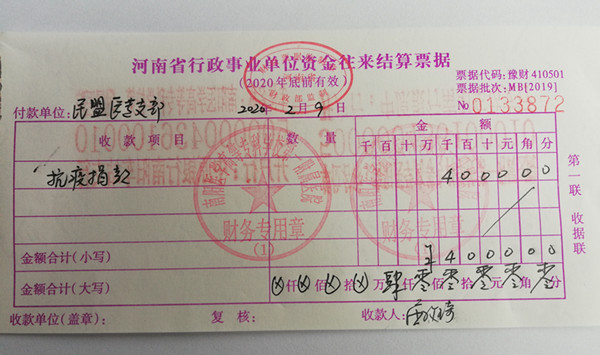 河南省行政事业单位资金往来结算票据
(2020年底前有效)
票据代码:豫财410501
票据批次:MB[2019]
付款单位:民盟医专支部 2020年2月9日 №0133872
收款项目 数量 金额
千百十万千百十元角分
抗疫捐款 400000
金额合计(小写) ¥400000
金额合计(大写) ⊗仟⊗佰⊗拾⊗万肆仟零佰零拾零元零角零分
收款单位(盖章): 复核: 收款人:
第一联 收据联
财务专用章
(1)